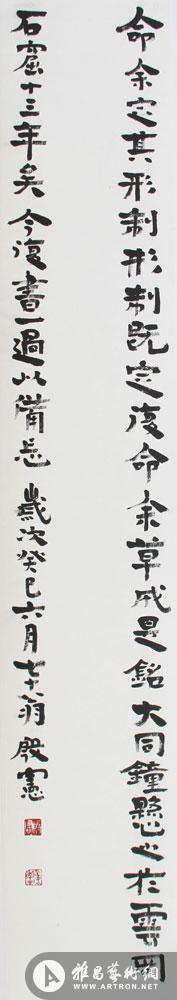 命余定其形制形制既定復命余草成是銘大同鐘懸之於雲岡
石窟十三年矣今復書一過以備忘歲次癸巳六月七十翁殷憲
雅昌藝術網
www.
ARTRON.NET